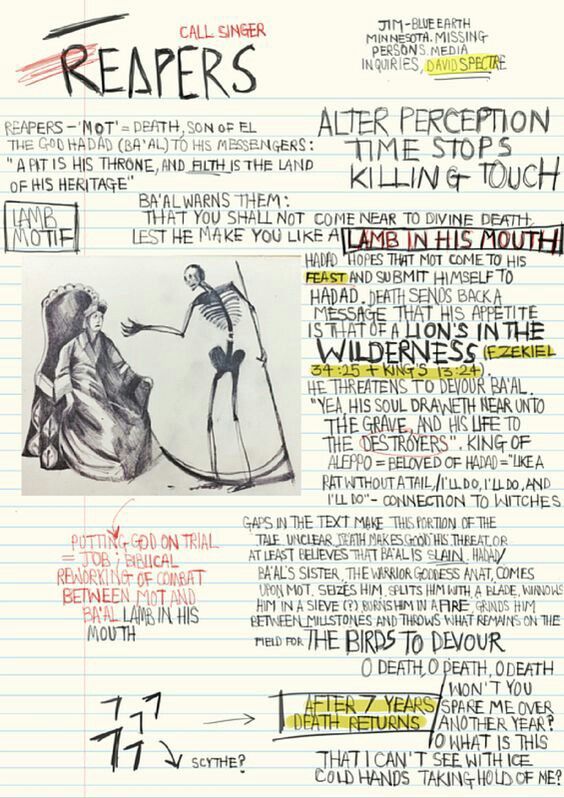 CALL SINGER
REAPERS
JIM-BLUE EARTH
MINNESOTA. MISSING
PERSONS. MEDIA
INQUIRIES, DAVID SPECTRE
REAPERS - 'MOT' = DEATH, SON OF EL
THE GOD HADAD (BA'AL) TO HIS MESSENGERS:
"A PIT IS HIS THRONE, AND FILTH IS THE LAND
OF HIS HERITAGE"
ALTER PERCEPTION
TIME STOPS
KILLING TOUCH
LAMB
MOTIF
BA'AL WARNS THEM:
THAT YOU SHALL NOT COME NEAR TO DIVINE DEATH,
LEST HE MAKE YOU LIKE A LAMB IN HIS MOUTH
HADAD HOPES THAT MOT COME TO HIS
FEAST AND SUBMIT HIMSELF TO
HADAD. DEATH SENDS BACK A
MESSAGE THAT HIS APPETITE
IS THAT OF A LION'S IN THE
WILDERNESS (EZEKIEL
34:25 + KING'S 13:24).
HE THREATENS TO DEVOUR BA'AL.
"YEA, HIS SOUL DRAWETH NEAR UNTO
THE GRAVE, AND HIS LIFE TO
THE DESTROYERS". KING OF
ALEPPO = BELOVED OF HADAD = "LIKE A
RAT WITHOUT A TAIL, /I'LL DO, I'LL DO, AND
I'LL DO" - CONNECTION TO WITCHES
PUTTING GOD ON TRIAL
= JOB; BIBLICAL
REWORKING OF COMBAT
BETWEEN MOT AND
BA'AL LAMB IN HIS
MOUTH
GAPS IN THE TEXT MAKE THIS PORTION OF THE
TALE UNCLEAR, DEATH MAKES GOOD HIS THREAT, OR
AT LEAST BELIEVES THAT BA'AL IS SLAIN, HADAD/
BA'AL'S SISTER, THE WARRIOR GODDESS ANAT, COMES
UPON MOT, SEIZES HIM, SPLITS HIM WITH A BLADE, WINNOWS
HIM IN A SIEVE (?), BURNS HIM IN A FIRE, GRINDS HIM
BETWEEN MILLSTONES AND THROWS WHAT REMAINS ON THE
FIELD FOR THE BIRDS TO DEVOUR
7 7 7
7 7
SCYTHE?
AFTER 7 YEARS
DEATH RETURNS
O DEATH, O DEATH, O DEATH
WON'T YOU
SPARE ME OVER
ANOTHER YEAR?
O WHAT IS THIS
THAT I CAN'T SEE WITH ICE
COLD HANDS TAKING HOLD OF ME?